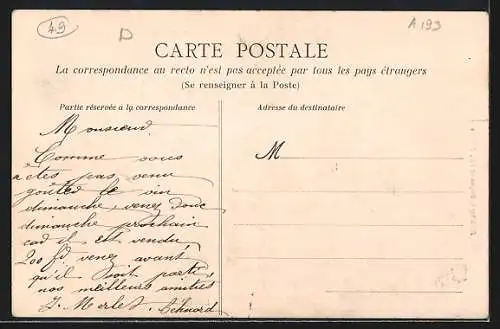 49
D
A 193
CARTE POSTALE
La correspondance au recto n'est pas acceptée par tous les pays étrangers
(Se renseigner à la Poste)
Partie réservée a la correspondance
Adresse du destinataire
M
Monsieur
Comme vous
n'êtes pas venu
goûter le vin
dimanche, venez donc
dimanche prochain
car il est vendu
200 venez avant
qu'il soit parti
nos meilleurs amitiés
J. Merlet